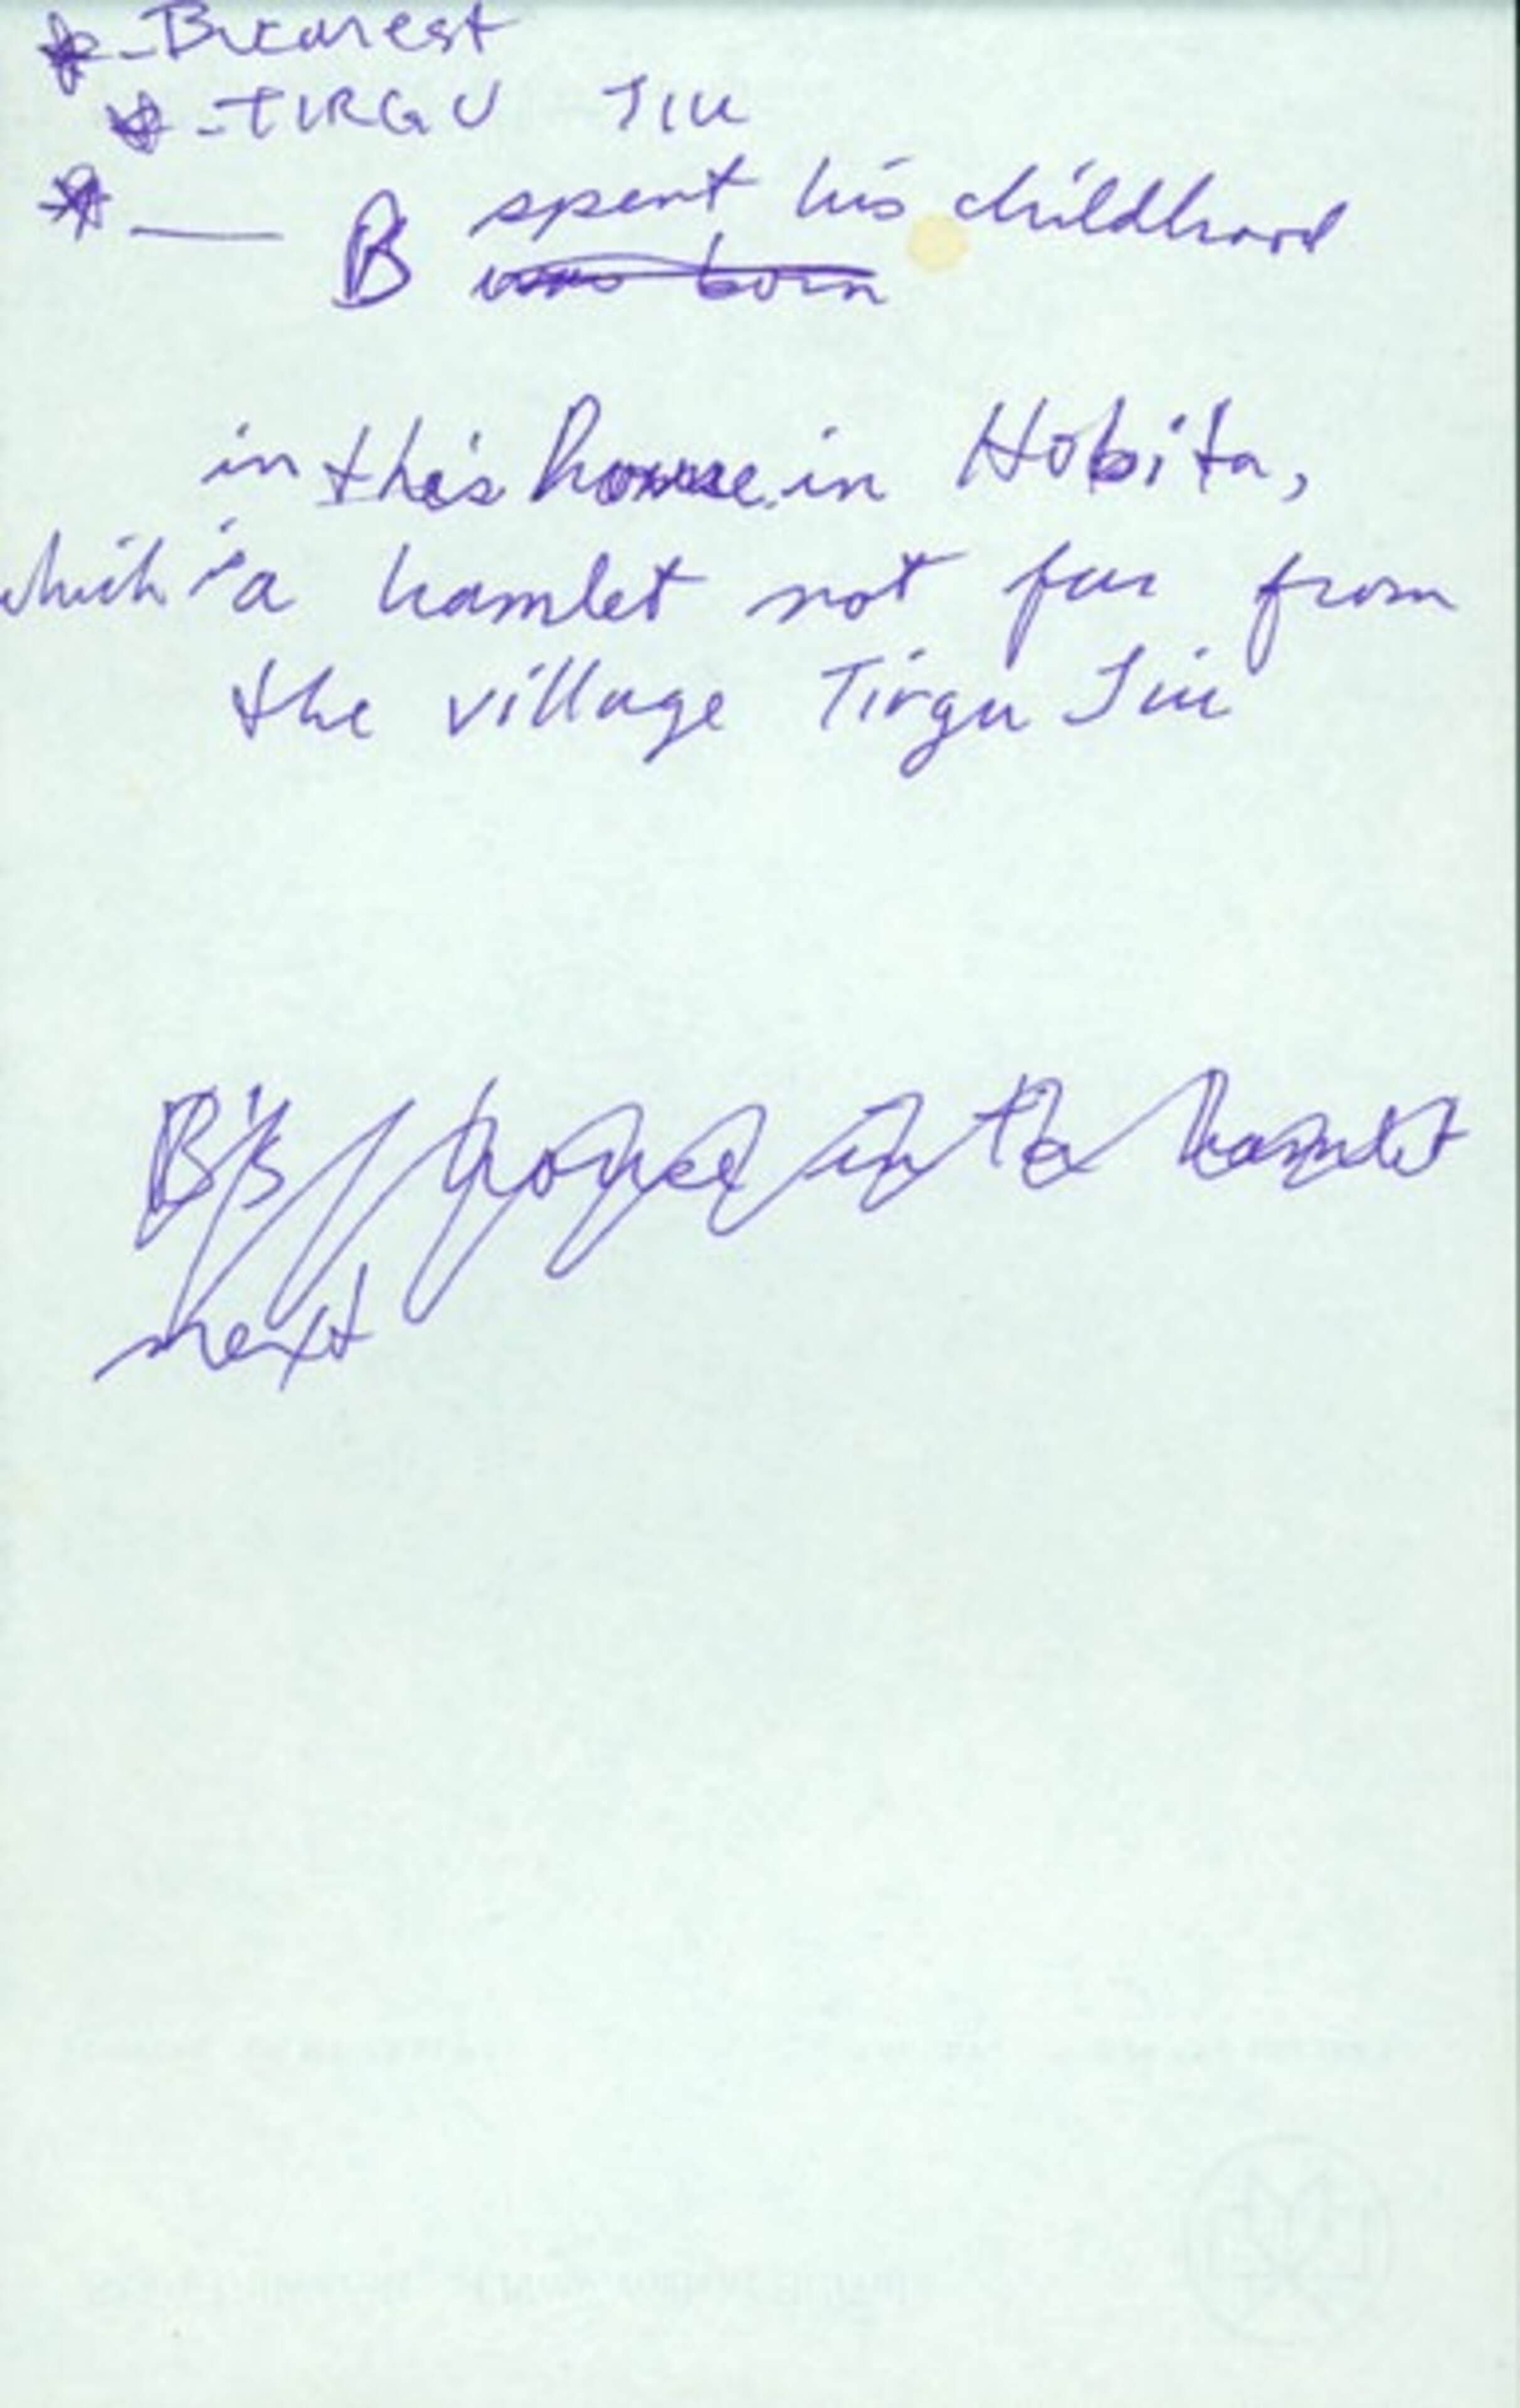 * - Bucarest
* - TIRGU JIU
* — B spent his childhood
was born
in this house in Hobita,
which is a hamlet not far from
the village Tirgu Jiu
B's house in the hamlet
next